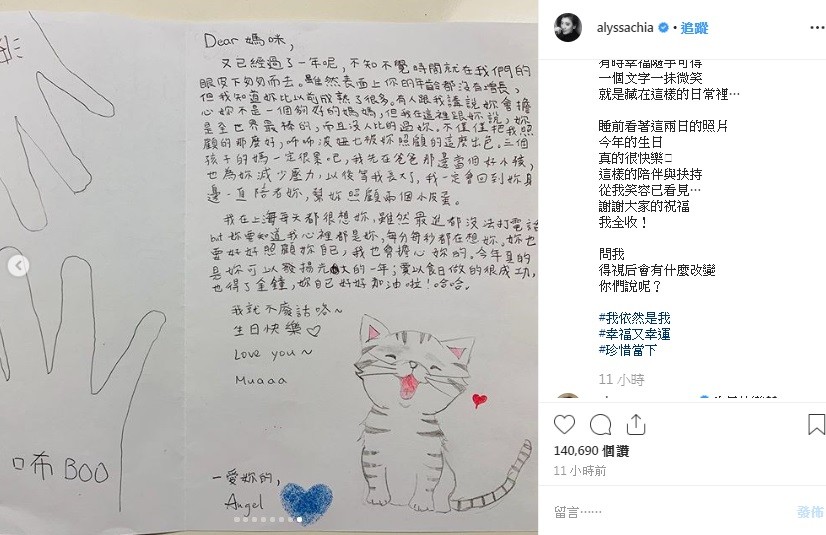 Dear 媽咪,
又已經過了一年呢,不知不覺時間就在我們的
眼皮下匆匆而去。雖然表面上你的年齡都沒有增長,
但我知道妳比以前成熟了很多。有人跟我講說妳會擔
心妳不是一個夠好的媽媽,但我在這裡跟妳說,妳
是全世界最棒的,而且沒人比的過妳。不僅僅把我照
顧的那麼好,咘咘波妞也被妳照顧的這麼出色。三個
孩子的媽一定很累吧,我先在爸爸那邊當個好小孩,
也為妳減少壓力,以後等我長大了,我一定會回到妳身
邊一直陪著妳,幫妳照顧兩個小皮蛋。
我在上海每天都很想妳,雖然最近都沒法打電話
but 妳要知道我心裡都是妳,每分每秒都在想妳。妳也
要好好照顧妳自己,我也會擔心妳的。今年真的
是妳可以發揚光大的一年;以食日做的很成功,
也得了金鐘,妳自己好好加油啦!哈哈。
我就不廢話咯~
生日快樂♡
Love you~
Muaaa
一愛妳的,
Angel
咘 BOO
alyssachia • 追蹤
有時幸福隨手可得
一個文字一抹微笑
就是藏在這樣的日常裡⋯
睡前看著這兩日的照片
今年的生日
真的很快樂
這樣的陪伴與扶持
從我笑容已看見⋯
謝謝大家的祝福
我全收！
問我
得視后會有什麼改變
你們說呢？
#我依然是我
#幸福又幸運
#珍惜當下
11 小時
140,690 個讚
11 小時前
留言⋯⋯
發佈